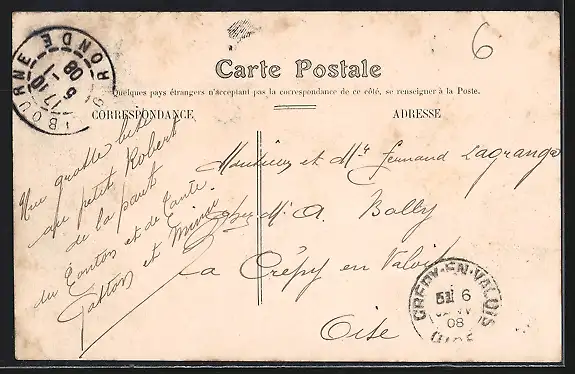 6
Carte Postale
Quelques pays étrangers n'acceptant pas la correspondance de ce côté, se renseigner à la Poste.
CORRESPONDANCE
ADRESSE
Une grosse bise
au petit Robert
de la part
du Tonton et de Tante
Gaston et
Monsieur et Mme Fernand Lagrange
chez Mr A. Bolly
à Crépy en Valois
Oise
LIBOURNE
GIRONDE
17 10
5 - 1
08
CREPY-EN-VALOIS
6
JANV
08
OISE